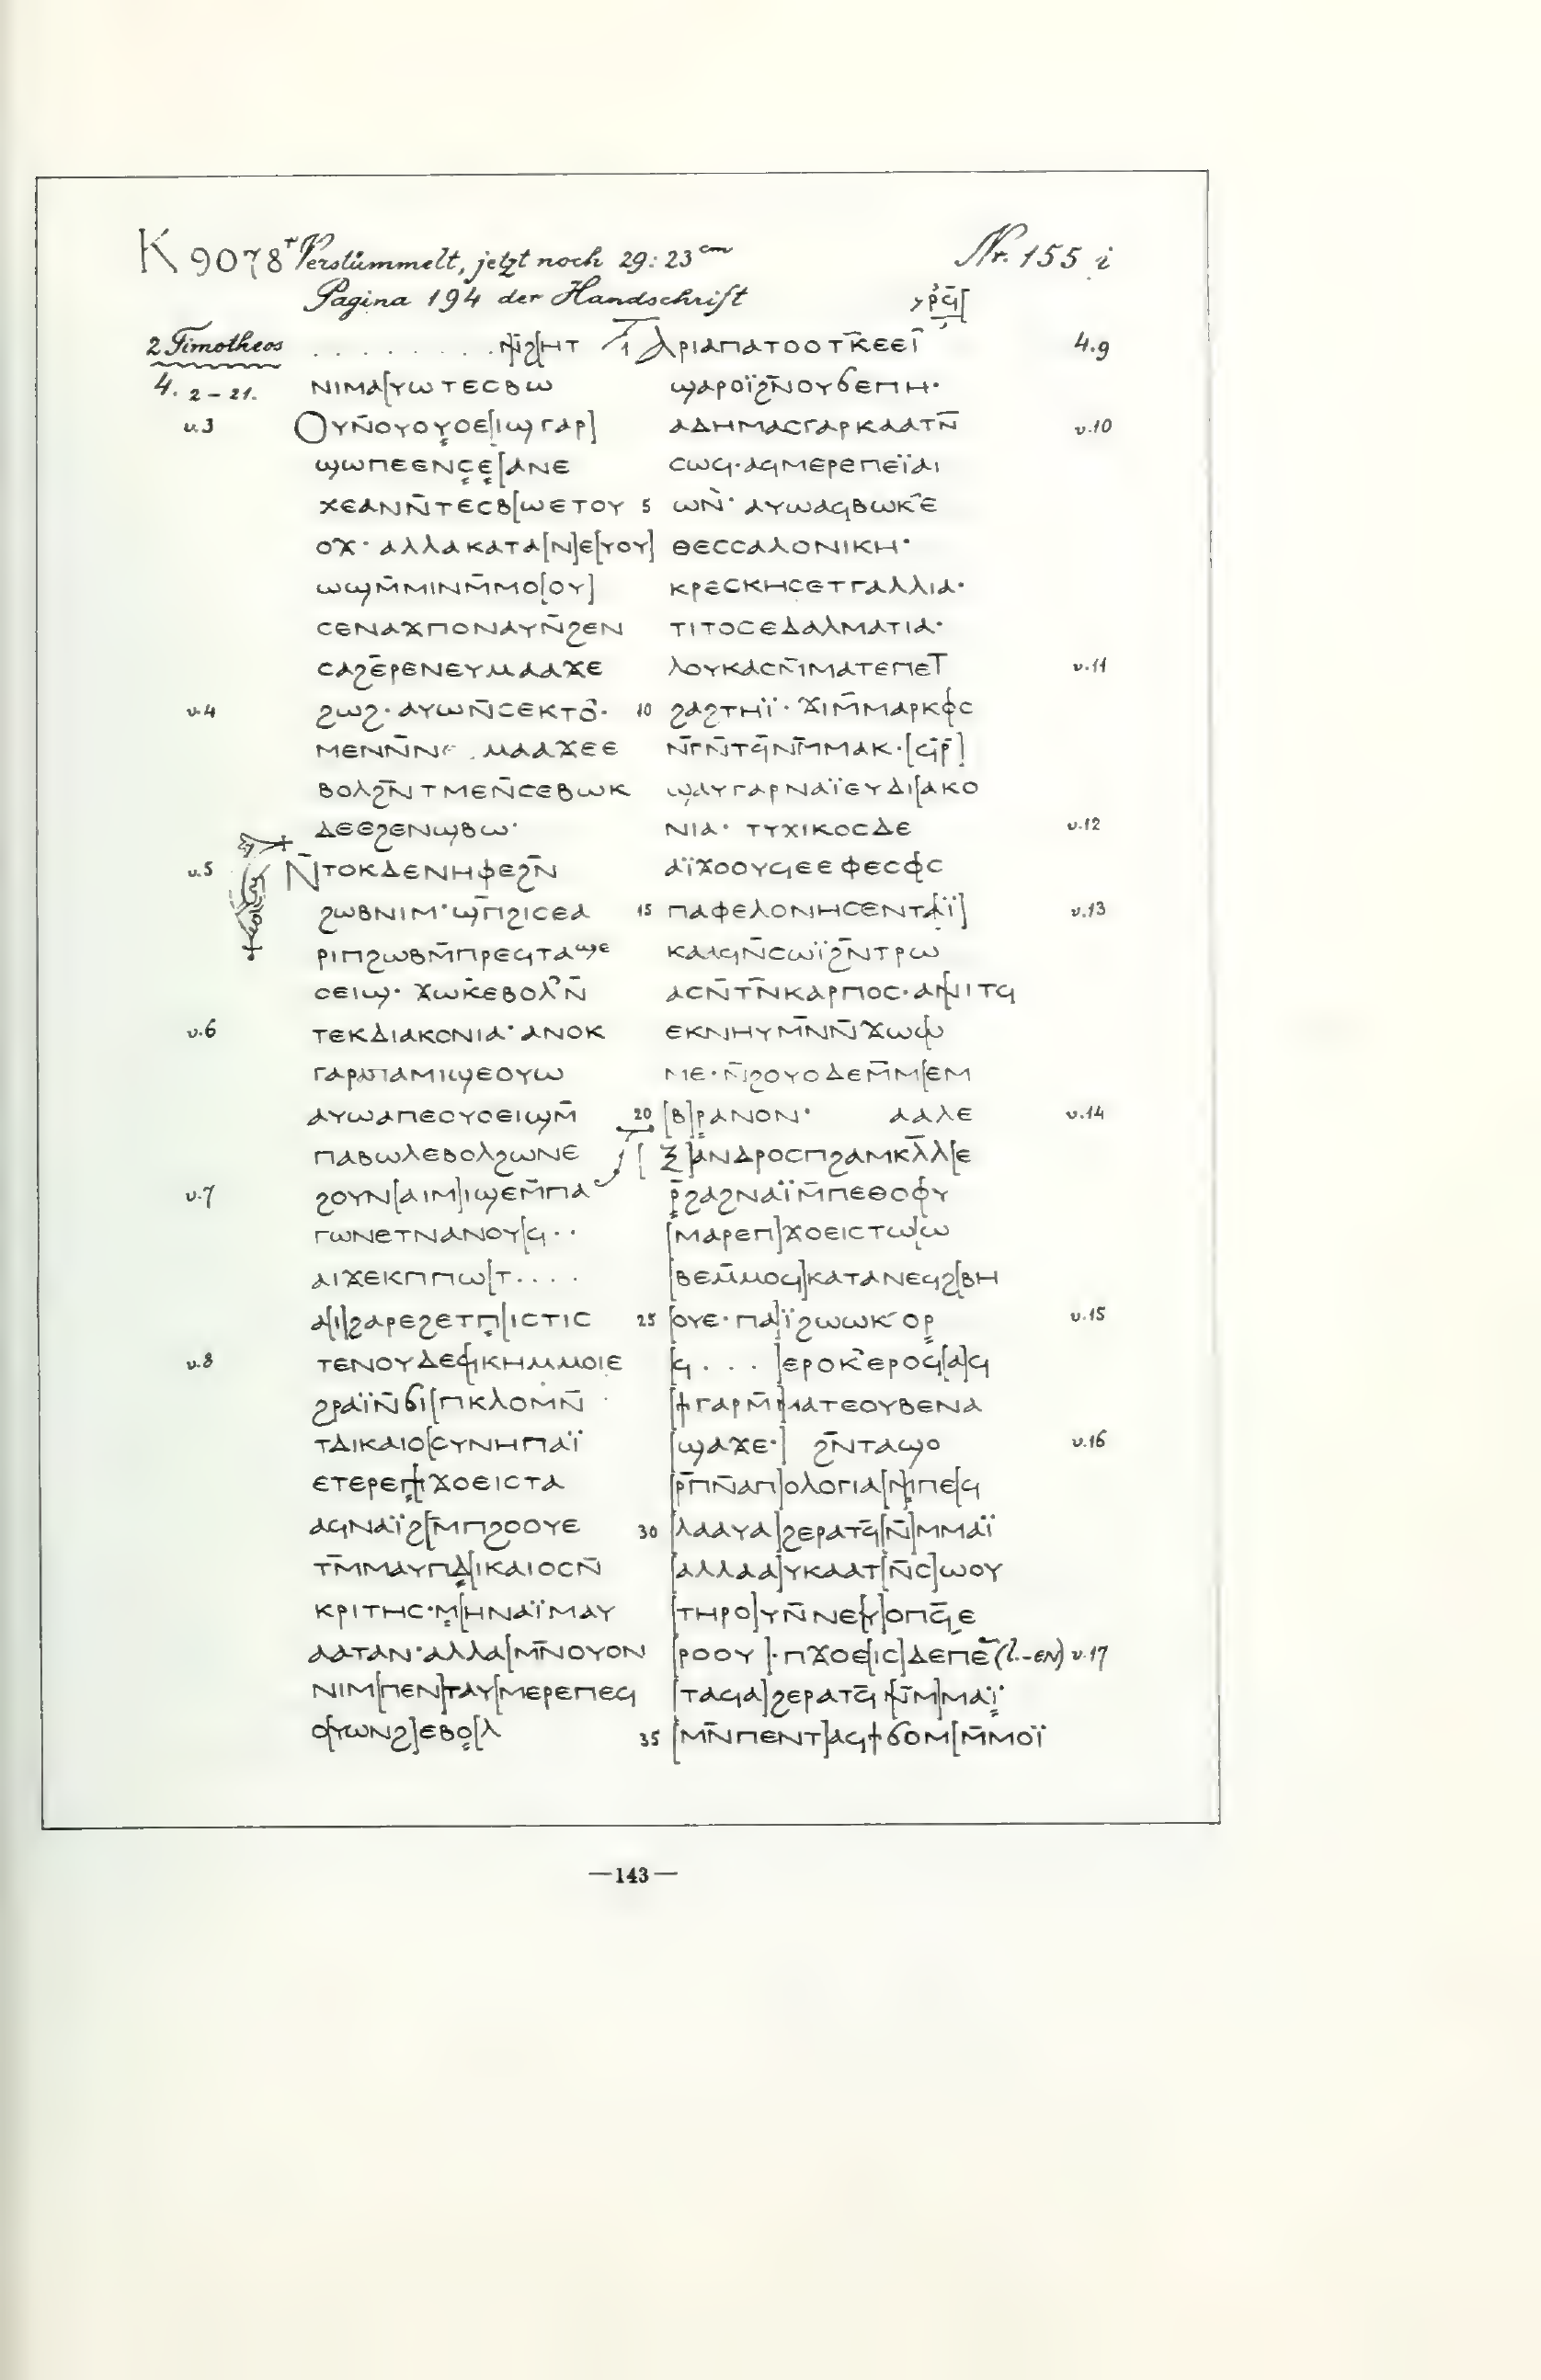 K 9078 Verstümmelt, jetzt noch 29:23 cm
Nr. 155 i
Pagina 194 der Handschrift
2 Timotheos
4. 2-21.
. . . . . . . . ⲛ̄ϩ]ⲏⲧ
ⲛⲓⲙⲁ[ⲩⲱ ⲧⲉⲥⲃⲱ
v.3 Ⲟⲩⲛ̄ⲟⲩⲟⲩ̣ⲟⲉ[ⲓϣ ⲅⲁⲣ]
ϣⲱⲡⲉⲉⲛⲥ̣ⲉ̣[ⲁⲛⲉ
ⲭⲉⲁⲛⲛ̄ⲧⲉⲥⲃ[ⲱⲉⲧⲟⲩ
ⲟϫ· ⲁⲗⲗⲁⲕⲁⲧⲁ[ⲛ]ⲉ[ⲩⲟⲩ]
ⲱϣⲙ̄ⲙⲓⲛⲙ̄ⲙⲟ[ⲟⲩ]
ⲥⲉⲛⲁϫⲡⲟⲛⲁⲩⲛ̄ϩⲉⲛ
ⲥⲁϩⲉ̄ⲣⲉⲛⲉⲩⲙⲁⲁϫⲉ
v.4 ϩⲱϩ· ⲁⲩⲱⲛ̄ⲥⲉⲕⲧⲟ̄·
ⲙⲉⲛⲛ̄ⲛⲉ . ⲙⲁⲁϫⲉⲉ
ⲃⲟⲗϩⲛ̄ⲧⲙⲉⲛ̄ⲥⲉⲃⲱⲕ
ⲇⲉⲉϩⲉⲛϣⲃⲱ·
v.5 Ⲛ̄ⲧⲟⲕⲇⲉⲛⲏⲫⲉϩⲛ̄
ϩⲱⲃⲛⲓⲙ· ϣⲡ̄ϩⲓⲥⲉⲁ
ⲣⲓⲡϩⲱⲃⲙ̄ⲡⲣⲉϥⲧⲁϣⲉ
ⲟⲉⲓϣ· ϫⲱⲕⲉⲃⲟⲗⲛ̄
v.6 ⲧⲉⲕⲇⲓⲁⲕⲟⲛⲓⲁ· ⲁⲛⲟⲕ
ⲅⲁⲣⲁⲡⲁⲙⲓϣⲉⲟⲩⲱ
ⲁⲩⲱⲁⲡⲉⲟⲩⲟⲉⲓϣⲙ̄
ⲡⲁⲃⲱⲗⲉⲃⲟⲗϩⲱⲛⲉ
v.7 ϩⲟⲩⲛ[ⲁⲓⲙ]ⲓϣⲉⲙ̄ⲡⲁ
ⲅⲱⲛⲉⲧⲛⲁⲛⲟⲩ[ϥ· ·
ⲁⲓϫⲉⲕⲡⲡⲱ[ⲧ· · · ·
ⲁ[ⲓ]ϩⲁⲣⲉϩⲉⲧⲡ̣[ⲓⲥⲧⲓⲥ
v.8 ⲧⲉⲛⲟⲩⲇⲉϥ[ⲕⲏⲙⲙⲟⲓⲉ
ϩⲣⲁⲓ̈ⲛ̄ϭⲓ[ⲡⲕⲗⲟⲙⲛ̄
ⲧⲇⲓⲕⲁⲓⲟ[ⲥⲩⲛⲏⲡⲁⲓ̈
ⲉⲧⲉⲣⲉⲡ̣[ϫⲟⲉⲓⲥⲧⲁ
ⲁϥⲛⲁⲓ̈ϩ[ⲙ̄ⲡϩⲟⲟⲩⲉ
ⲧⲙ̄ⲙⲁⲩⲡⲇ̣[ⲓⲕⲁⲓⲟⲥⲛ̄
ⲕⲣⲓⲧⲏⲥ·ⲙ̣[ⲏⲛⲁⲓ̈ⲙⲁⲩ
ⲁⲁⲧⲁⲛ·ⲁⲗⲗⲁ[ⲙⲛ̄ⲟⲩⲟⲛ
ⲛⲓⲙ[ⲡⲉⲛ]ⲧⲁⲩ[ⲙⲉⲣⲉⲡⲉϥ
ⲟ[ⲩⲱⲛϩ]ⲉⲃⲟ̣[ⲗ
1 Ⲁⲣⲓⲁⲡⲁⲧⲟⲟⲧⲕ̄ⲉⲉⲓ̄ 4.9
ϣⲁⲣⲟⲓ̈ϩⲛ̄ⲟⲩϭⲉⲡⲏ·
ⲁⲇⲏⲙⲁⲥⲅⲁⲣⲕⲁⲁⲧⲛ̄ v.10
ⲥⲱϥ·ⲁϥⲙⲉⲣⲉⲡⲉⲓ̈ⲁⲓ
5 ⲱⲛ̀· ⲁⲩⲱⲁϥⲃⲱⲕⲉ̂
ⲑⲉⲥⲥⲁⲗⲟⲛⲓⲕⲏ·
ⲕⲣⲉⲥⲕⲏⲥⲉⲧⲅⲁⲗⲗⲓⲁ·
ⲧⲓⲧⲟⲥⲉⲇⲁⲗⲙⲁⲧⲓⲁ·
ⲗⲟⲩⲕⲁⲥⲛ̄ⲙⲁⲧⲉⲡⲉⲧ v.11
10 ϩⲁϩⲧⲏⲓ̈· ϫⲓⲙ̄ⲙⲁⲣⲕⲟⲥ
ⲛ̄ⲅⲛ̄ⲧϥ̄ⲛⲙ̄ⲙⲁⲕ·[ϥⲣ̄]
ϣⲁⲩⲅⲁⲣⲛⲁⲓ̈ⲉⲩⲇⲓ[ⲁⲕⲟ
ⲛⲓⲁ· ⲧⲩⲭⲓⲕⲟⲥⲇⲉ v.12
ⲁⲓ̈ϫⲟⲟⲩϥⲉⲉⲫⲉⲥⲟⲥ
15 ⲡⲁⲫⲉⲗⲟⲛⲏⲥⲉⲛⲧⲁ[ⲓ̈] v.13
ⲕⲁⲁϥⲛ̄ⲥⲱⲓ̈ϩⲛ̄ⲧⲣⲱ
ⲁⲥⲛ̄ⲧⲛ̄ⲕⲁⲣⲡⲟⲥ·ⲁⲛⲓⲧϥ
ⲉⲕⲛⲏⲩⲙ̄ⲛⲛ̄ϫⲱⲱ
ⲙⲉ·ⲛ̄ϩⲟⲩⲟⲇⲉⲙ̄ⲙ[ⲉⲙ
20 [ⲃ]ⲣ̣ⲁⲛⲟⲛ· ⲁⲁⲗⲉ v.14
[ⲝ]ⲁⲛⲇⲣⲟⲥⲡϩⲁⲙⲕⲗ̄ⲗ[ⲉ
ⲣ̣̄ϩⲁϩⲛⲁⲓ̈ⲙ̄ⲡⲉⲑⲟⲟⲩ
[ⲙⲁⲣⲉⲡ]ϫⲟⲉⲓⲥⲧⲱⲱ
[ⲃⲉⲙ̄ⲙⲟϥ]ⲕⲁⲧⲁⲛⲉϥϩ[ⲃⲏ
25 [ⲟⲩⲉ·ⲡⲁ]ⲓ̈ϩⲱⲱⲕ ⲟⲣ̣ v.15
[ϥ . . . ]ⲉⲣⲟⲕ ⲉⲣⲟϥ[ⲁ]ϥ
[ϯⲅⲁⲣⲙ̄]ⲙⲁⲧⲉⲟⲩⲃⲉⲛⲁ
[ϣⲁϫⲉ·] ϩⲛ̄ⲧⲁϣⲟ v.16
[ⲣ̄ⲡⲛ̄ⲁⲡ]ⲟⲗⲟⲅⲓⲁ[ⲙ̄]ⲡⲉ[ϥ
30 [ⲗⲁⲁⲩⲁ]ϩⲉⲣⲁⲧϥ̄[ⲛ̄]ⲙⲙⲁⲓ̈
[ⲁⲗⲗⲁⲁ]ⲩⲕⲁⲁⲧ[ⲛ̄ⲥ]ⲱⲟⲩ
[ⲧⲏⲣⲟ]ⲩⲛ̄ⲛⲉⲩ[ⲟⲡϥ̄ⲉ
[ⲣⲟⲟⲩ]·ⲡϫⲟⲉ[ⲓⲥ]ⲇⲉⲡⲉ̄ (l.-ⲉⲛ) v.17
[ⲧⲁϥⲁ]ϩⲉⲣⲁⲧϥ̄[ⲛⲙ̄]ⲙⲁⲓ̈
35 [ⲙⲛ̄ⲡⲉⲛⲧ]ⲁϥϯϭⲟⲙ[ⲙ̄ⲙⲟⲓ̈
—143—